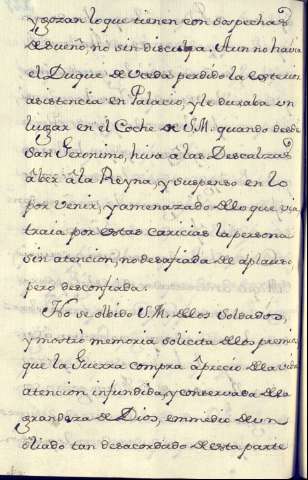 y gozan lo que tienen con sospechas
de sueño, no sin disculpa. Aun no havia
el Duque de Uceda perdido la exterior
asistencia en Palacio, y le duraba un
lugar en el Coche de S.M. quando desde
San Geronimo, hiva â las Descalzas
âber â la Reyna, y suspenso en lo
por venir, y amenazado dlo que via
traia por estas caricias la persona
sin atencion, no desafiada del aplauso
pero desconfiada.
No se olbidó S.M. dlos Soldados,
y mostró memoria solicita dlos premios
que la Guerra compra â precio dla vida
atencion infundida, y conservada dla
grandeza de Dios, en medio de un
olvido tan desacordado de esta parte